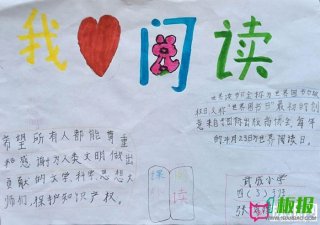 我 阅读
世界读书日全称为世界图书与版
权日,又称"世界图书日"最初的创
意来自于国际出版商协会,每年
的4月23日为世界阅读日。
希望所有人都能尊重
和感谢为人类文明做出
贡献的文学、科学、思想大
师们,保护知识产权。
课 阅
外 读
育成小学
四(3)班
板报